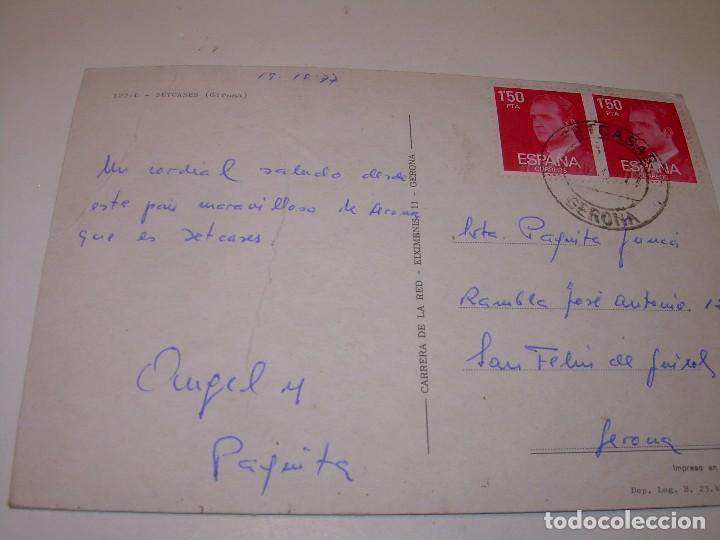 15-10-77
122-L - SETCASES (Girona)
Un cordial saludo desde
este pais maravilloso de Gerona
que es Setcases.
Angel y
Paquita
CARRERA DE LA RED - EIXIMENIS, 11 - GERONA
1'50 PTA
ESPAÑA
CORREOS
1'50 PTA
ESPAÑA
CORREOS
SETCASAS
GERONA
Srta. Paquita
Rambla José Antonio 12
San Feliu de Guixols
Gerona
Impreso en
Dep. Leg. B. 23.4
todocoleccion
todocoleccion.net